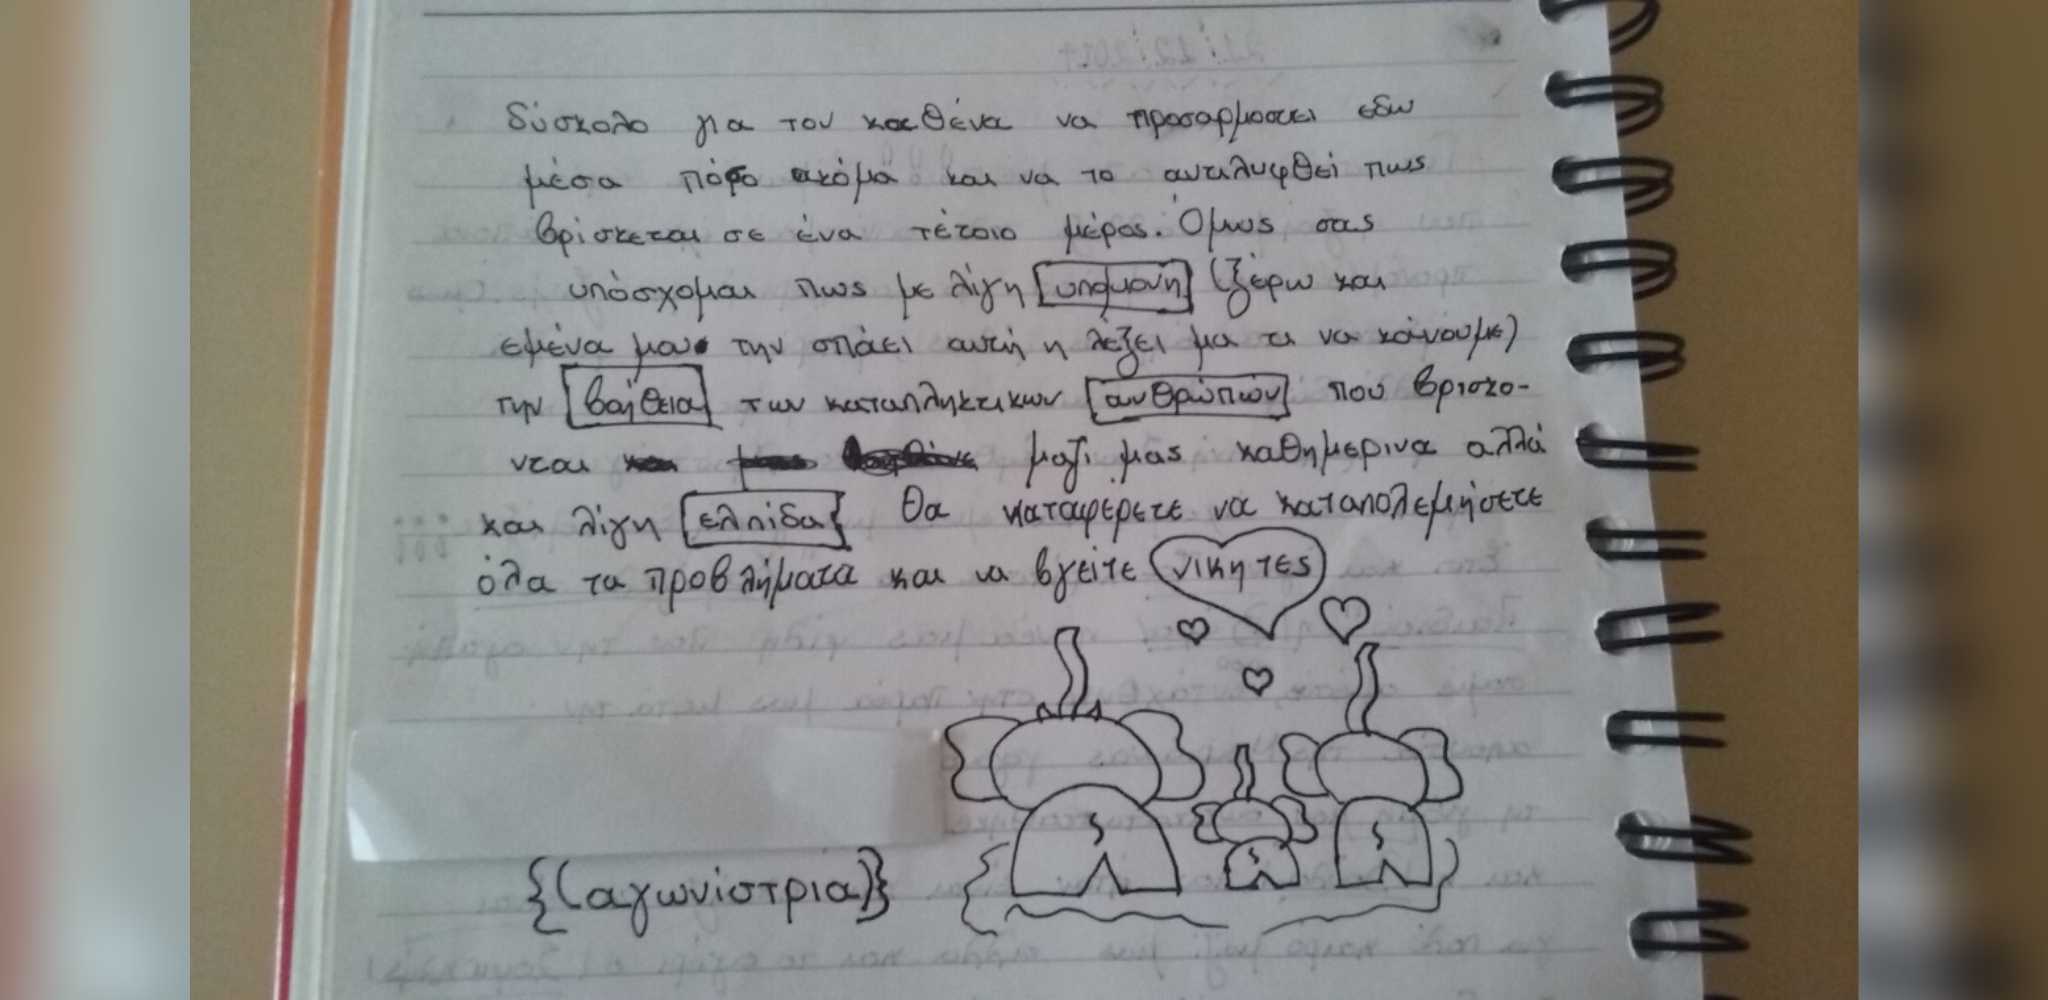 δύσκολο για τον καθένα να προσαρμοστει εδω
μέσα πόσο ακόμα και να το αντιλυφθεί πως
βρίσκεται σε ένα τέτοιο μέρος. Όμως σας
υπόσχομαι πως με λίγη υπομονη (ξέρω και
εμένα μου την σπάει αυτή η λέξει μα τι να κάνουμε)
την βοήθεια των καταπληκτικων ανθρώπων που βρισκο-
νται μαζί μας καθημερινα αλλά
και λίγη ελπίδα θα καταφέρετε να καταπολεμήσετε
όλα τα προβλήματα και να βγείτε νικητες
{(αγωνίστρια)}